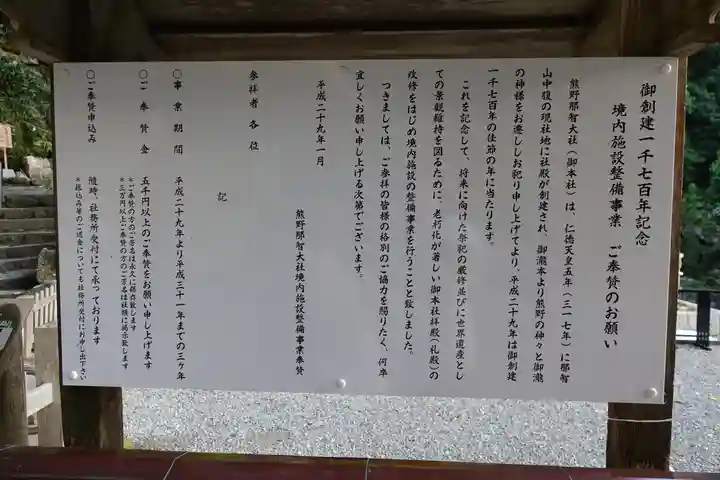 御創建一千七百年記念
境内施設整備事業 ご奉賛のお願い
熊野那智大社（御本社）は、仁徳天皇五年（三一七年）に那智
山中腹の現社地に社殿が創建され、御瀧本より熊野の神々と御瀧
の神様をお遷ししお祀り申し上げてより、平成二十九年は御創建
一千七百年の佳節の年に当たります。
これを記念して、将来に向けた祭祀の厳修並びに世界遺産とし
ての景観維持を図るために、老朽化が著しい御本社拝殿（礼殿）の
改修をはじめ境内施設の整備事業を行うことと致しました。
つきましては、ご参拝の皆様の格別のご協力を賜りたく、何卒
宜しくお願い申し上げる次第でございます。
平成二十九年一月
熊野那智大社境内施設整備事業奉賛
参拝者各位
記
〇事業期間 平成二十九年より平成三十一年までの三ヶ年
〇ご奉賛金 五千円以上のご奉賛をお願い申し上げます
＊ご奉賛の方のご芳名は永久に保存致します
＊三万円以上ご奉賛の方のご芳名は社頭に掲示致します
〇ご奉賛申込み 随時、社務所受付にて承っております
＊振込み等のご送金についても社務所受付にお申し出下さい